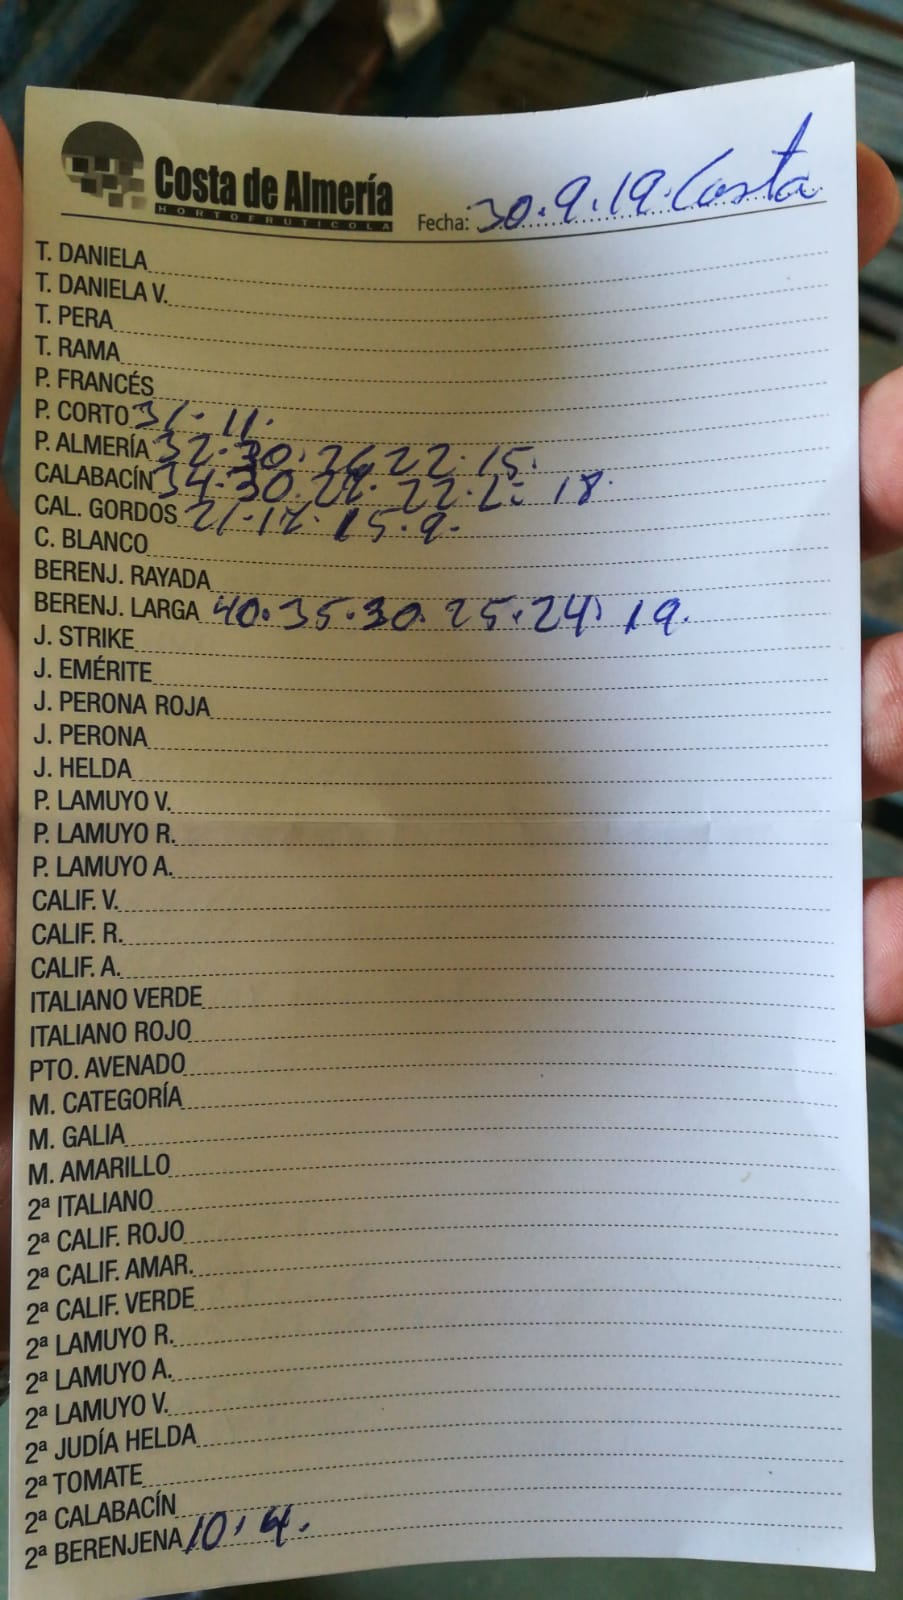 Costa de Almería
HORTOFRUTICOLA
Fecha: 30.9.19. Costa
T. DANIELA
T. DANIELA V.
T. PERA
T. RAMA
P. FRANCÉS
P. CORTO 31.11.
P. ALMERÍA 32.30.26 22.15.
CALABACÍN 34.30. 22. 18.
CAL. GORDOS 21. 15.9.
C. BLANCO
BERENJ. RAYADA
BERENJ. LARGA 40.35.30.25.24. 19.
J. STRIKE
J. EMÉRITE
J. PERONA ROJA
J. PERONA
J. HELDA
P. LAMUYO V.
P. LAMUYO R.
P. LAMUYO A.
CALIF. V.
CALIF. R.
CALIF. A.
ITALIANO VERDE
ITALIANO ROJO
PTO. AVENADO
M. CATEGORÍA
M. GALIA
M. AMARILLO
2ª ITALIANO
2ª CALIF. ROJO
2ª CALIF. AMAR.
2ª CALIF. VERDE
2ª LAMUYO R.
2ª LAMUYO A.
2ª LAMUYO V.
2ª JUDÍA HELDA
2ª TOMATE
2ª CALABACÍN
2ª BERENJENA 10. 4.